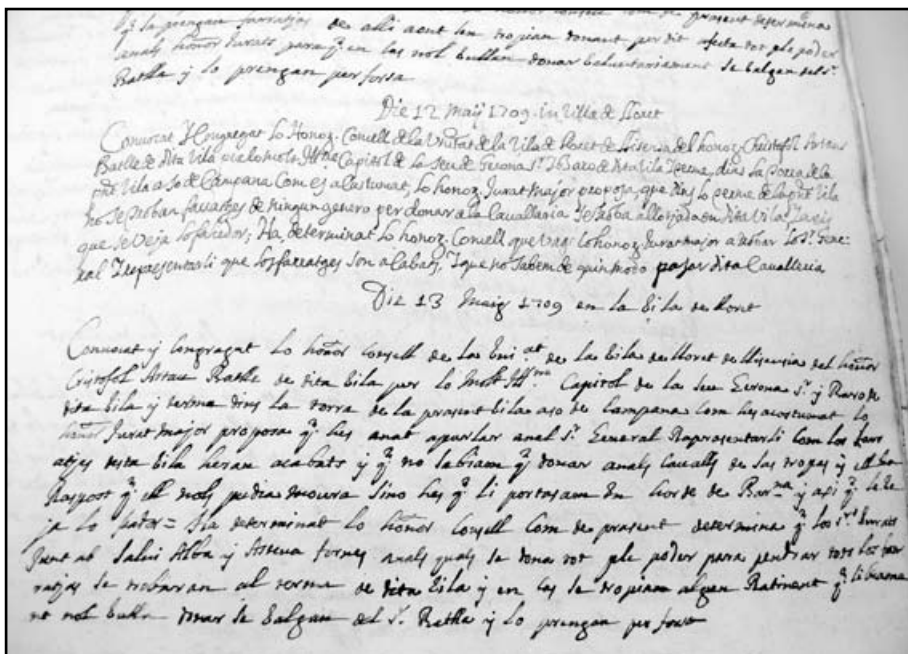 q̃ la prengan farratjas de alli aont len tropian donant per dit afecta tot ple poder
anals honor Jurats, para q̃ en cas nol bullan donar boluntariament se balgan del s.r
Batlla y lo prengan per forsa
Die 12 Maij 1709. in Villa de Lloret
Convocat y Congregat lo Honor. Consell de la Vnitat de la Vila de Lloret de llicensia del honor. Christofol Artau
Batlle de dita Vila per lo molt Ill.e Capitol de la Seu de Gerona S.r y Baro de dita Vila y terme, dins la Torra de la
p̃nt Vila a so de Campana Com es acostumat, lo honor. Jurat major proposa, que dins lo terme de la p̃nt Vila
no se troban farratjes de ningun genero per donar a la Cavalleria se troba allotjada en dita Vila, y axis
que se veja lo faedor; Ha determinat lo honor. Consell que vaja lo honor. Jurat major a trobar lo S.r Gene-
ral y representarli que los farratges son acabats, y que no sabem de quin modo pasar dita Cavalleria
Die 13 Maig 1709 en la bila de lloret
Convocat y congragat lo honor consell de la bni.at de la bila de lloret de llisensia del honor
Cristofol Artau Batlle de dita bila per lo molt Ill.tre Capitol de la Seu Gerona S.r y Barro de
dita bila y terma dins la torra de la present bila aso de campana com hes acostumat lo
honor Jurat major proposa q̃ hes anat a parlar anal S.r General Raprasentarli com los farr
atjes desta bila heran acabats y q̃ no sabiam q̃ donar anals cavalls de las tropas y ell ha
Raspost q̃ ell nols podia moura sino hes q̃ li portasam un horde de Bar.na y axi q̃ se be
ja lo fador= Ha determinat lo honor Consell com de prasent determina q̃ los s.rs Jurats
Junt ab Salvi Alba y Asteva fornes anals quals se dona tot ple poder para pendrar tots los far
ratjas se trobarran al terma de dita bila y en cas se tropian algun Ratinent q̃
nt nol bulla donar se balgan del S.r Batlla y lo prengan per forsa